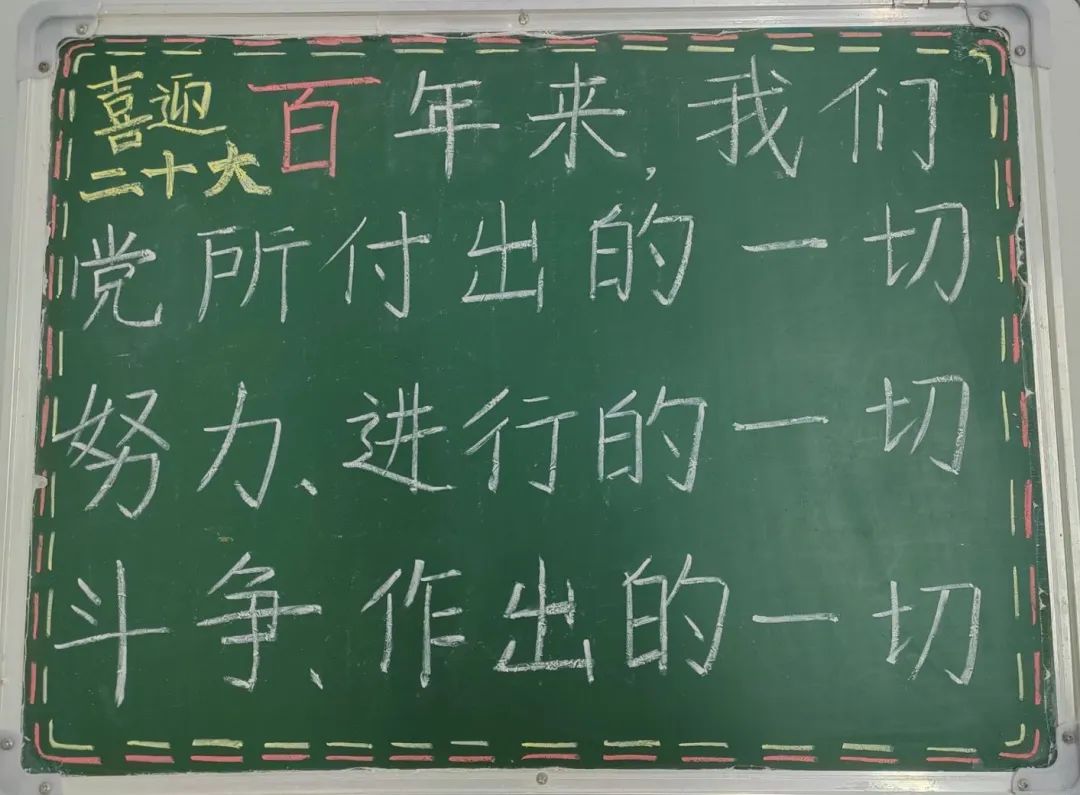 喜迎
二十大
百年来,我们
党所付出的一切
努力、进行的一切
斗争、作出的一切